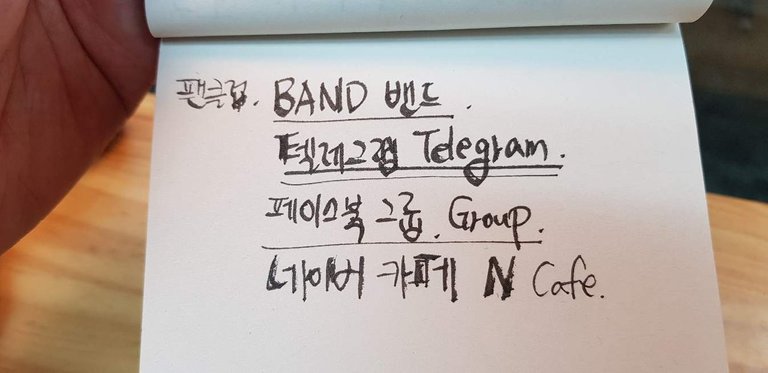 팬클럽. BAND 밴드.
텔레그램 Telegram.
페이스북 그룹. Group.
네이버 카페 N Cafe.